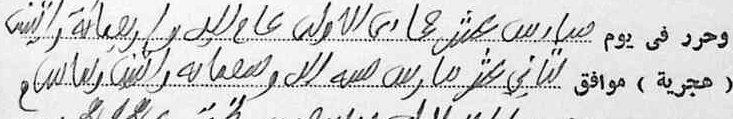 وحرر فى يوم سادس عشر جمادى الاولى عام الف واربعمائة واثنين
( هجرية ) موافق ثاني عشر مارس سنة الف وتسعمائة واثنين وثمانين م